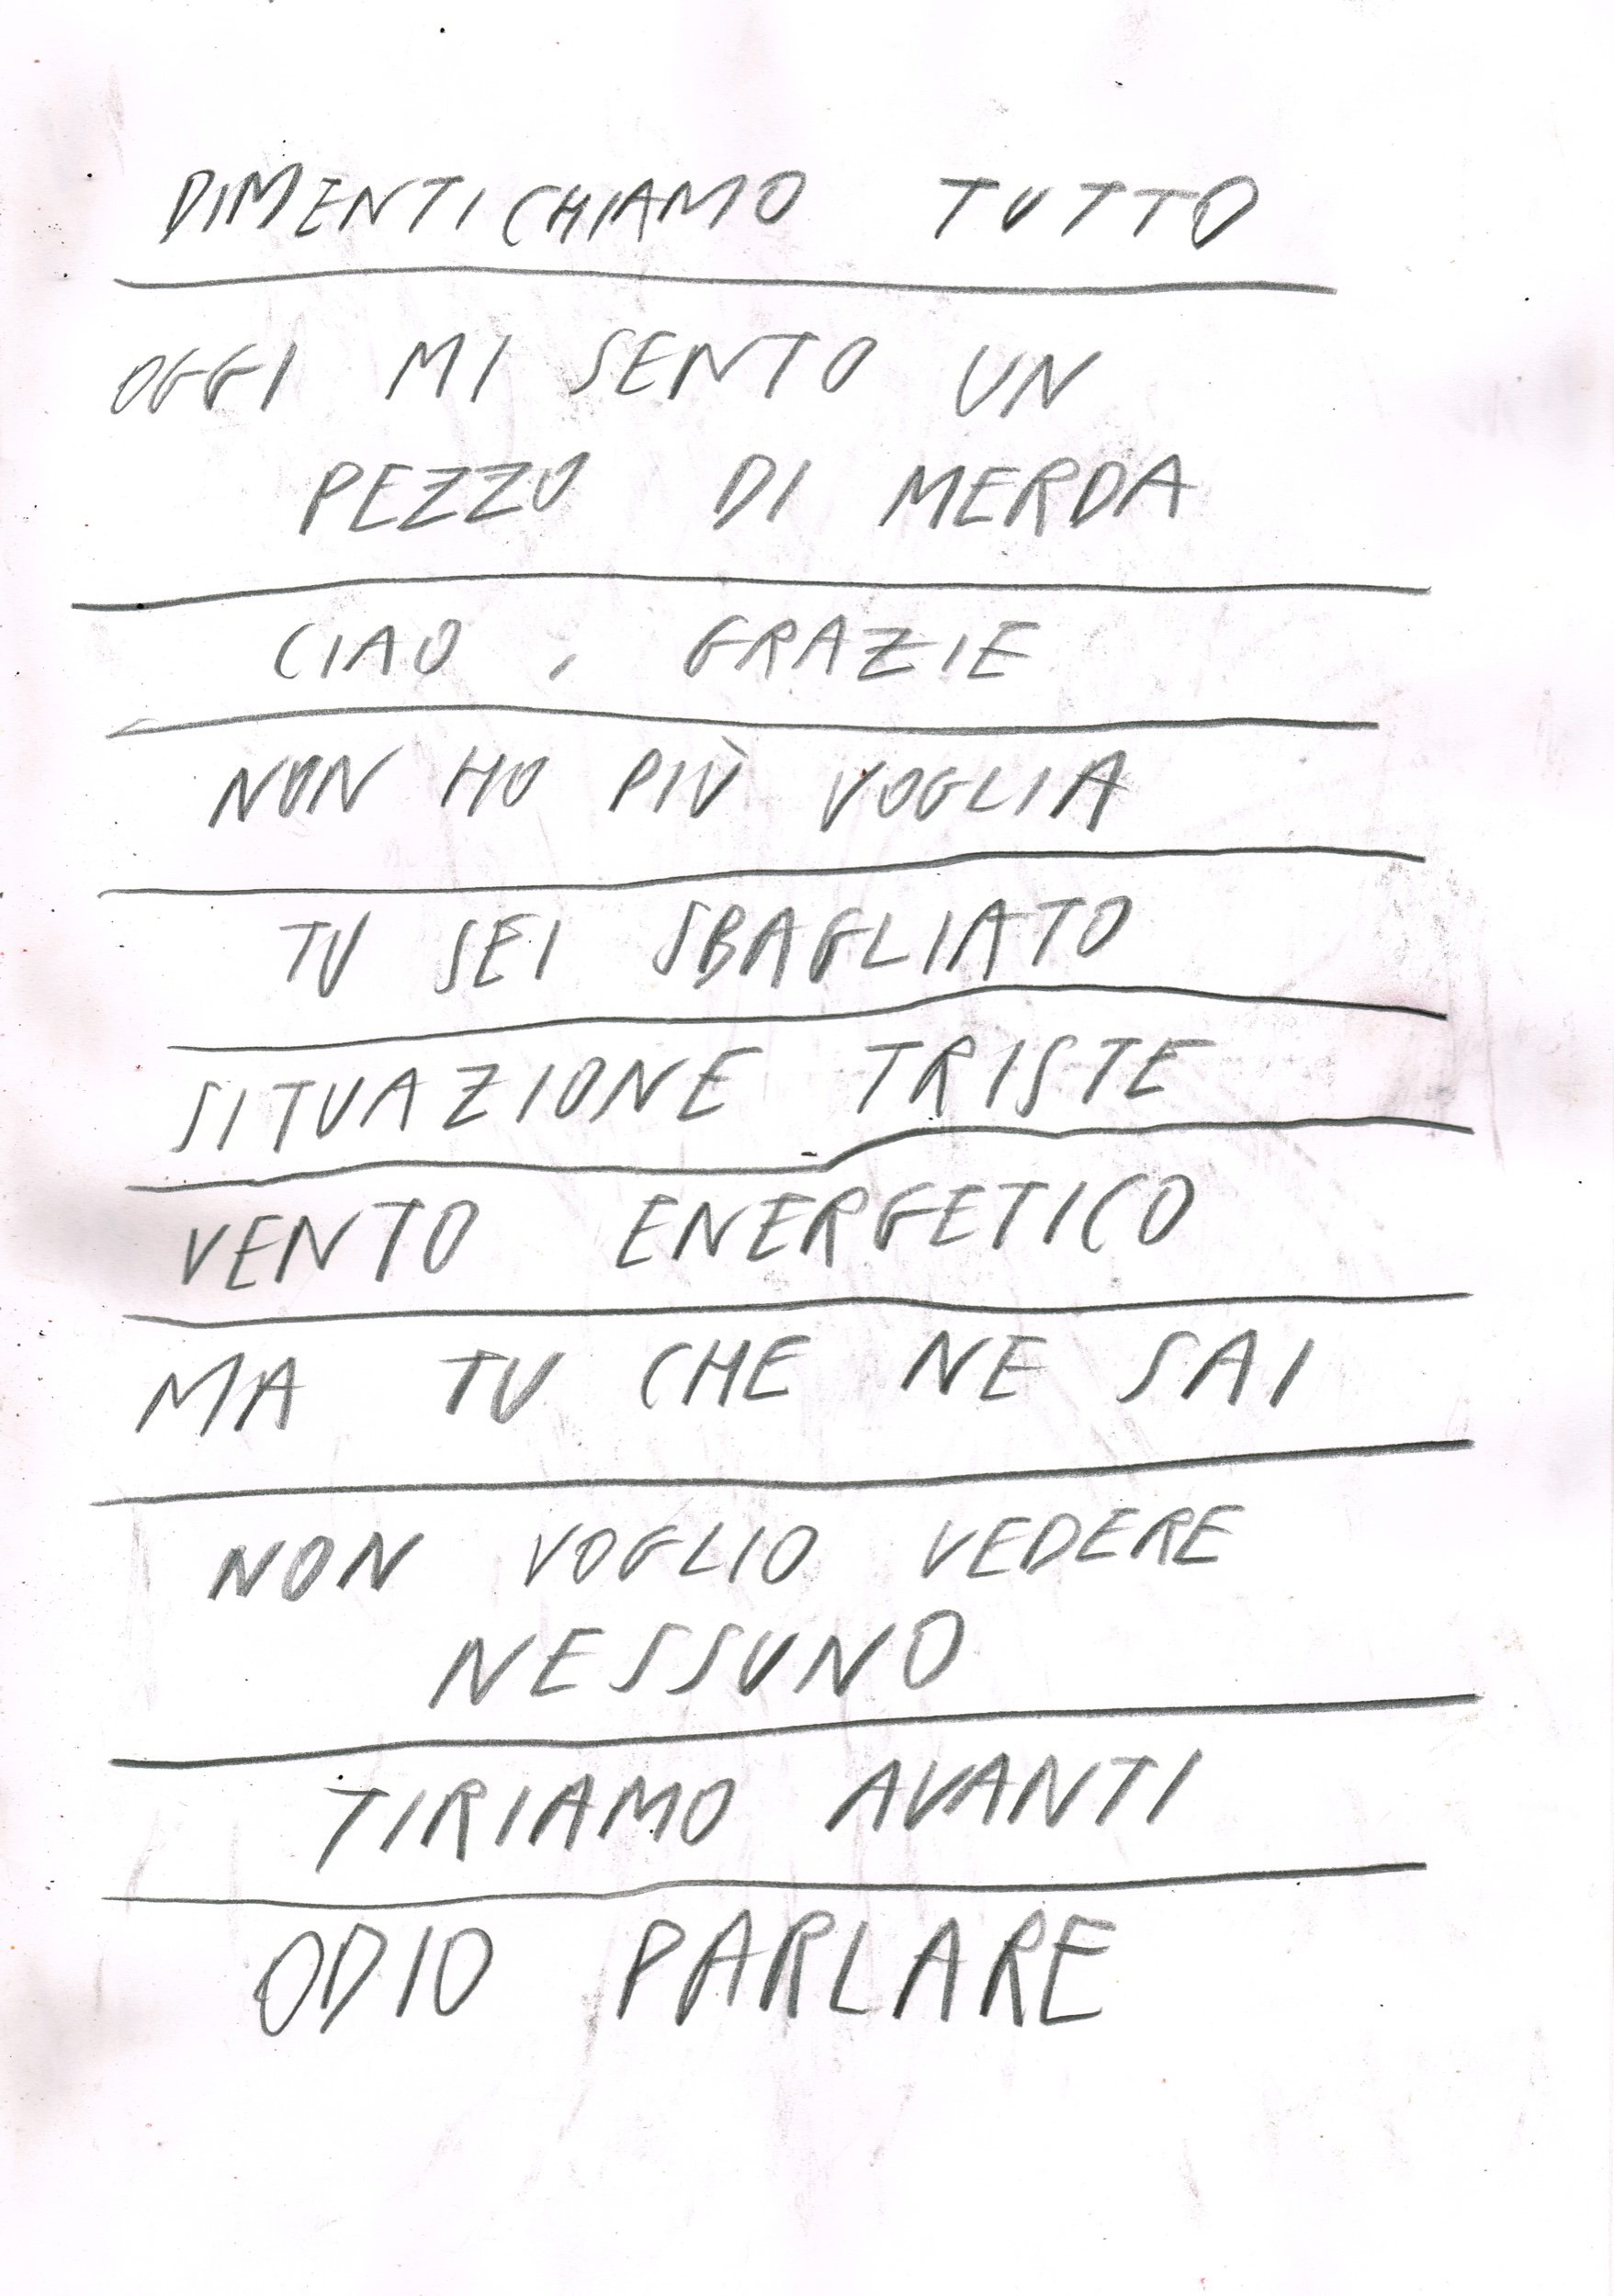 DIMENTICHIAMO TUTTO
OGGI MI SENTO UN
PEZZO DI MERDA
CIAO, GRAZIE
NON HO PIÙ VOGLIA
TU SEI SBAGLIATO
SITUAZIONE TRISTE
VENTO ENERGETICO
MA TU CHE NE SAI
NON VOGLIO VEDERE
NESSUNO
TIRIAMO AVANTI
ODIO PARLARE